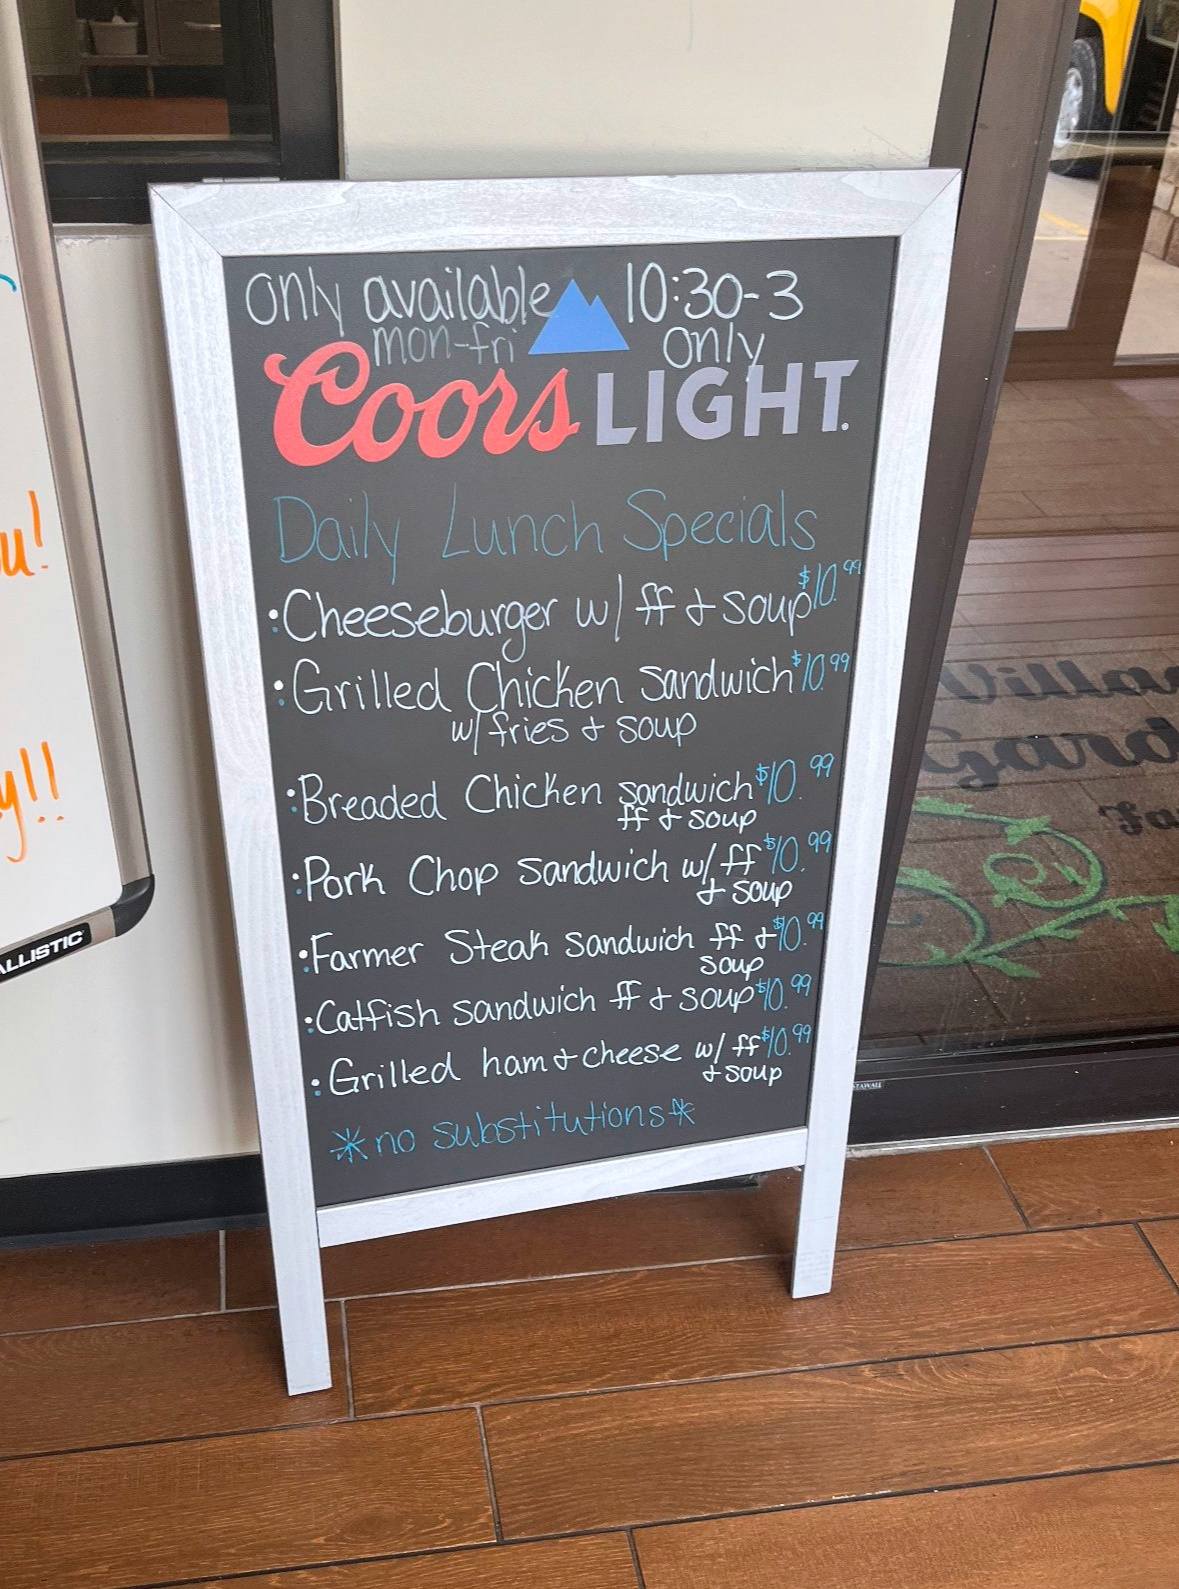 only available 10:30-3
mon-fri only
Coors LIGHT.
Daily Lunch Specials
• Cheeseburger w/ ff & soup $10.99
• Grilled Chicken sandwich $10.99
w/ fries & soup
• Breaded Chicken sandwich $10.99
ff & soup
• Pork Chop sandwich w/ ff $10.99
& soup
• Farmer Steak sandwich ff & $10.99
soup
• Catfish sandwich ff & soup $10.99
• Grilled ham & cheese w/ ff $10.99
& soup
*no substitutions*
u!
y!!
ALLISTIC
Villa
Gard
Fa